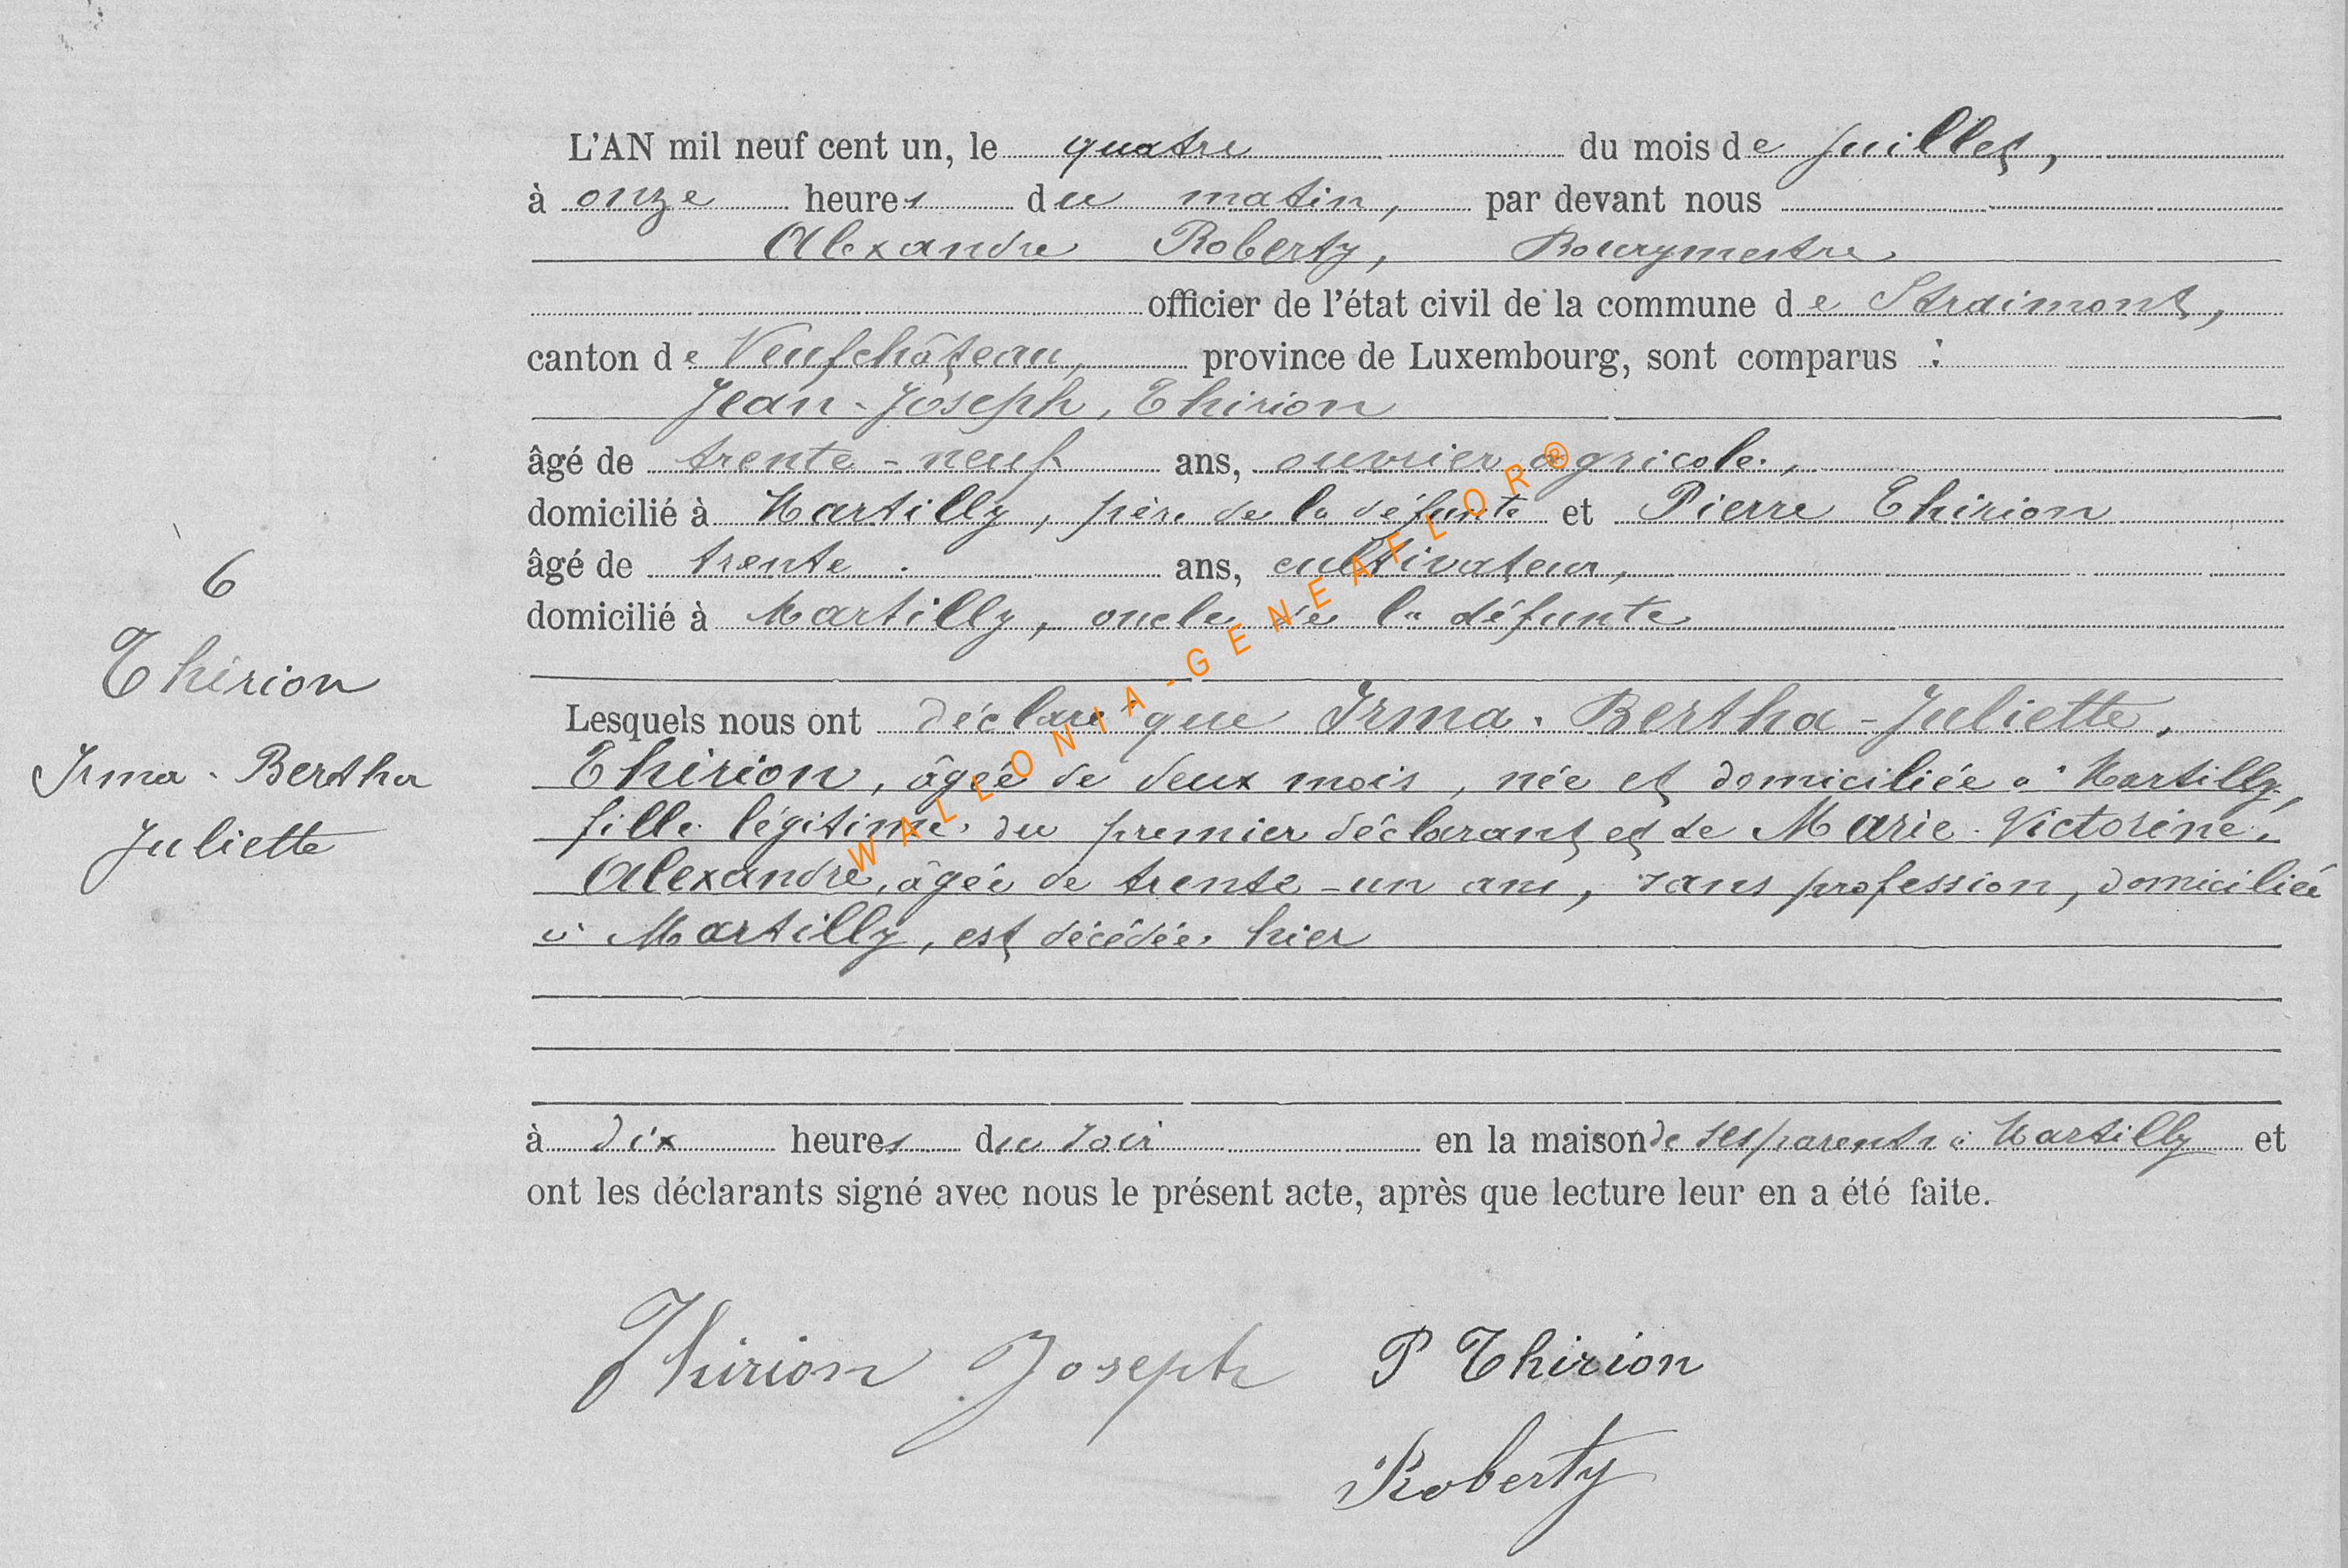 L'AN mil neuf cent un, le quatre du mois de juillet,
à onze heures du matin, par devant nous
Alexandre Roberty, Bourgmestre
officier de l'état civil de la commune de Straimont,
canton de Neufchâteau, province de Luxembourg, sont comparus :
Jean-Joseph, Thirion
âgé de trente-neuf ans, ouvrier agricole,
domicilié à Martilly, père de la défunte et Pierre Thirion
âgé de trente ans, cultivateur,
domicilié à Martilly, oncle de la défunte
6
Thirion
Irma-Bertha
Juliette
Lesquels nous ont déclaré que Irma-Bertha-Juliette,
Thirion, âgée de deux mois, née et domiciliée à Martilly,
fille légitime du premier déclarant et de Marie-Victorine,
Alexandre, âgée de trente-un ans, sans profession, domiciliée
à Martilly, est décédée hier
à dix heures du soir en la maison de ses parents à Martilly et
ont les déclarants signé avec nous le présent acte, après que lecture leur en a été faite.
Thirion Joseph P Thirion
Roberty
WALLONIA-GENEAFLOR®